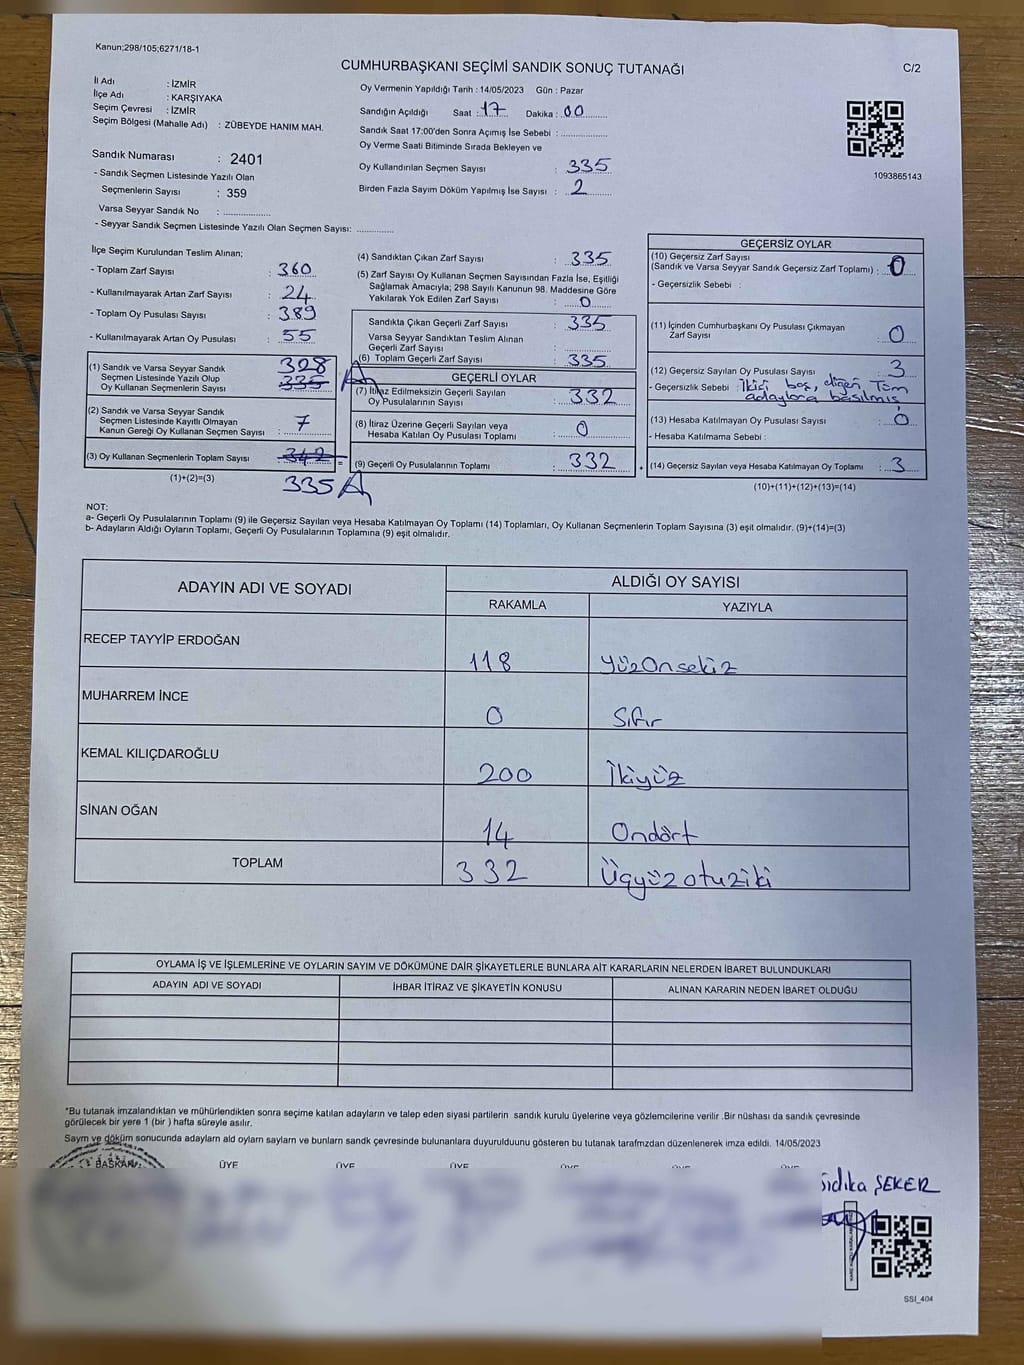 Kanun;298/105;6271/18-1
CUMHURBAŞKANI SEÇİMİ SANDIK SONUÇ TUTANAĞI
C/2
İl Adı : İZMİR
İlçe Adı : KARŞIYAKA
Seçim Çevresi : İZMİR
Seçim Bölgesi (Mahalle Adı) : ZÜBEYDE HANIM MAH.
Sandık Numarası : 2401
- Sandık Seçmen Listesinde Yazılı Olan
Seçmenlerin Sayısı : 359
Varsa Seyyar Sandık No : ..................
- Seyyar Sandık Seçmen Listesinde Yazılı Olan Seçmen Sayısı: ..............
Oy Vermenin Yapıldığı Tarih : 14/05/2023 Gün : Pazar
Sandığın Açıldığı Saat : 17 Dakika : 00
Sandık Saat 17:00'den Sonra Açımış İse Sebebi : ..................
Oy Verme Saati Bitiminde Sırada Bekleyen ve
Oy Kullandırılan Seçmen Sayısı : 335
Birden Fazla Sayım Döküm Yapılmış İse Sayısı : 2
1093865143
İlçe Seçim Kurulundan Teslim Alınan;
- Toplam Zarf Sayısı : 360
- Kullanılmayarak Artan Zarf Sayısı : 24
- Toplam Oy Pusulası Sayısı : 389
- Kullanılmayarak Artan Oy Pusulası : 55
(1) Sandık ve Varsa Seyyar Sandık
Seçmen Listesinde Yazılı Olup
Oy Kullanan Seçmenlerin Sayısı : 328
335
(2) Sandık ve Varsa Seyyar Sandık
Seçmen Listesinde Kayıtlı Olmayan
Kanun Gereği Oy Kullanan Seçmen Sayısı : 7
(3) Oy Kullanan Seçmenlerin Toplam Sayısı : 342 =
(1)+(2)=(3)
335
(4) Sandıktan Çıkan Zarf Sayısı : 335
(5) Zarf Sayısı Oy Kullanan Seçmen Sayısından Fazla İse, Eşitliği
Sağlamak Amacıyla; 298 Sayılı Kanunun 98. Maddesine Göre
Yakılarak Yok Edilen Zarf Sayısı : 0
Sandıkta Çıkan Geçerli Zarf Sayısı : 335
Varsa Seyyar Sandıktan Teslim Alınan
Geçerli Zarf Sayısı
(6) Toplam Geçerli Zarf Sayısı : 335
GEÇERLİ OYLAR
(7) İtiraz Edilmeksizin Geçerli Sayılan
Oy Pusulalarının Sayısı : 332
(8) İtiraz Üzerine Geçerli Sayılan veya
Hesaba Katılan Oy Pusulası Toplamı : 0
(9) Geçerli Oy Pusulalarının Toplamı : 332
GEÇERSİZ OYLAR
(10) Geçersiz Zarf Sayısı
(Sandık ve Varsa Seyyar Sandık Geçersiz Zarf Toplamı) : 0
- Geçersizlik Sebebi :
(11) İçinden Cumhurbaşkanı Oy Pusulası Çıkmayan
Zarf Sayısı : 0
(12) Geçersiz Sayılan Oy Pusulası Sayısı : 3
- Geçersizlik Sebebi : İkisi boş, diğeri Tüm
adaylara basılmış
(13) Hesaba Katılmayan Oy Pusulası Sayısı : 0
- Hesaba Katılmama Sebebi :
(14) Geçersiz Sayılan veya Hesaba Katılmayan Oy Toplamı : 3
(10)+(11)+(12)+(13)=(14)
NOT:
a- Geçerli Oy Pusulalarının Toplamı (9) ile Geçersiz Sayılan veya Hesaba Katılmayan Oy Toplamı (14) Toplamları, Oy Kullanan Seçmenlerin Toplam Sayısına (3) eşit olmalıdır. (9)+(14)=(3)
b- Adayların Aldığı Oyların Toplamı, Geçerli Oy Pusulalarının Toplamına (9) eşit olmalıdır.
ADAYIN ADI VE SOYADI
ALDIĞI OY SAYISI
RAKAMLA YAZIYLA
RECEP TAYYİP ERDOĞAN 118 YüzOnsekiz
MUHARREM İNCE 0 Sıfır
KEMAL KILIÇDAROĞLU 200 İkiyüz
SİNAN OĞAN 14 Ondört
TOPLAM 332 Üçyüzotuziki
OYLAMA İŞ VE İŞLEMLERİNE VE OYLARIN SAYIM VE DÖKÜMÜNE DAİR ŞİKAYETLERLE BUNLARA AİT KARARLARIN NELERDEN İBARET BULUNDUKLARI
ADAYIN ADI VE SOYADI İHBAR İTİRAZ VE ŞİKAYETİN KONUSU ALINAN KARARIN NEDEN İBARET OLDUĞU
*Bu tutanak imzalandıktan ve mühürlendikten sonra seçime katılan adayların ve talep eden siyasi partilerin sandık kurulu üyelerine veya gözlemcilerine verilir .Bir nüshası da sandık çevresinde
görülecek bir yere 1 (bir ) hafta süreyle asılır.
Saym ve döküm sonucunda adaylarn ald oylarn saylarn ve bunlarn sandk çevresinde bulunanlara duyurulduunu gösteren bu tutanak tarafmzdan düzenlenerek imza edildi. 14/05/2023
BAŞKAN ÜYE ÜYE ÜYE ÜYE ÜYE ÜYE
Sıdıka ŞEKER
SSI_404